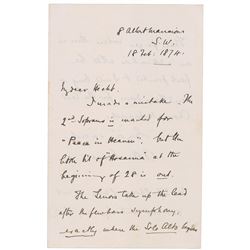 8 Albert Mansions
S.W.
18 Feb. 1874.
My dear Hecht.
I made a mistake. The
2nd Soprano is marked for
"Peace in Heaven", but the
little bit of "Hosanna" at the
beginning of 28 is out.
The Tenors take up the lead
after the few bars symphony,
exactly when the Solo Alto begins